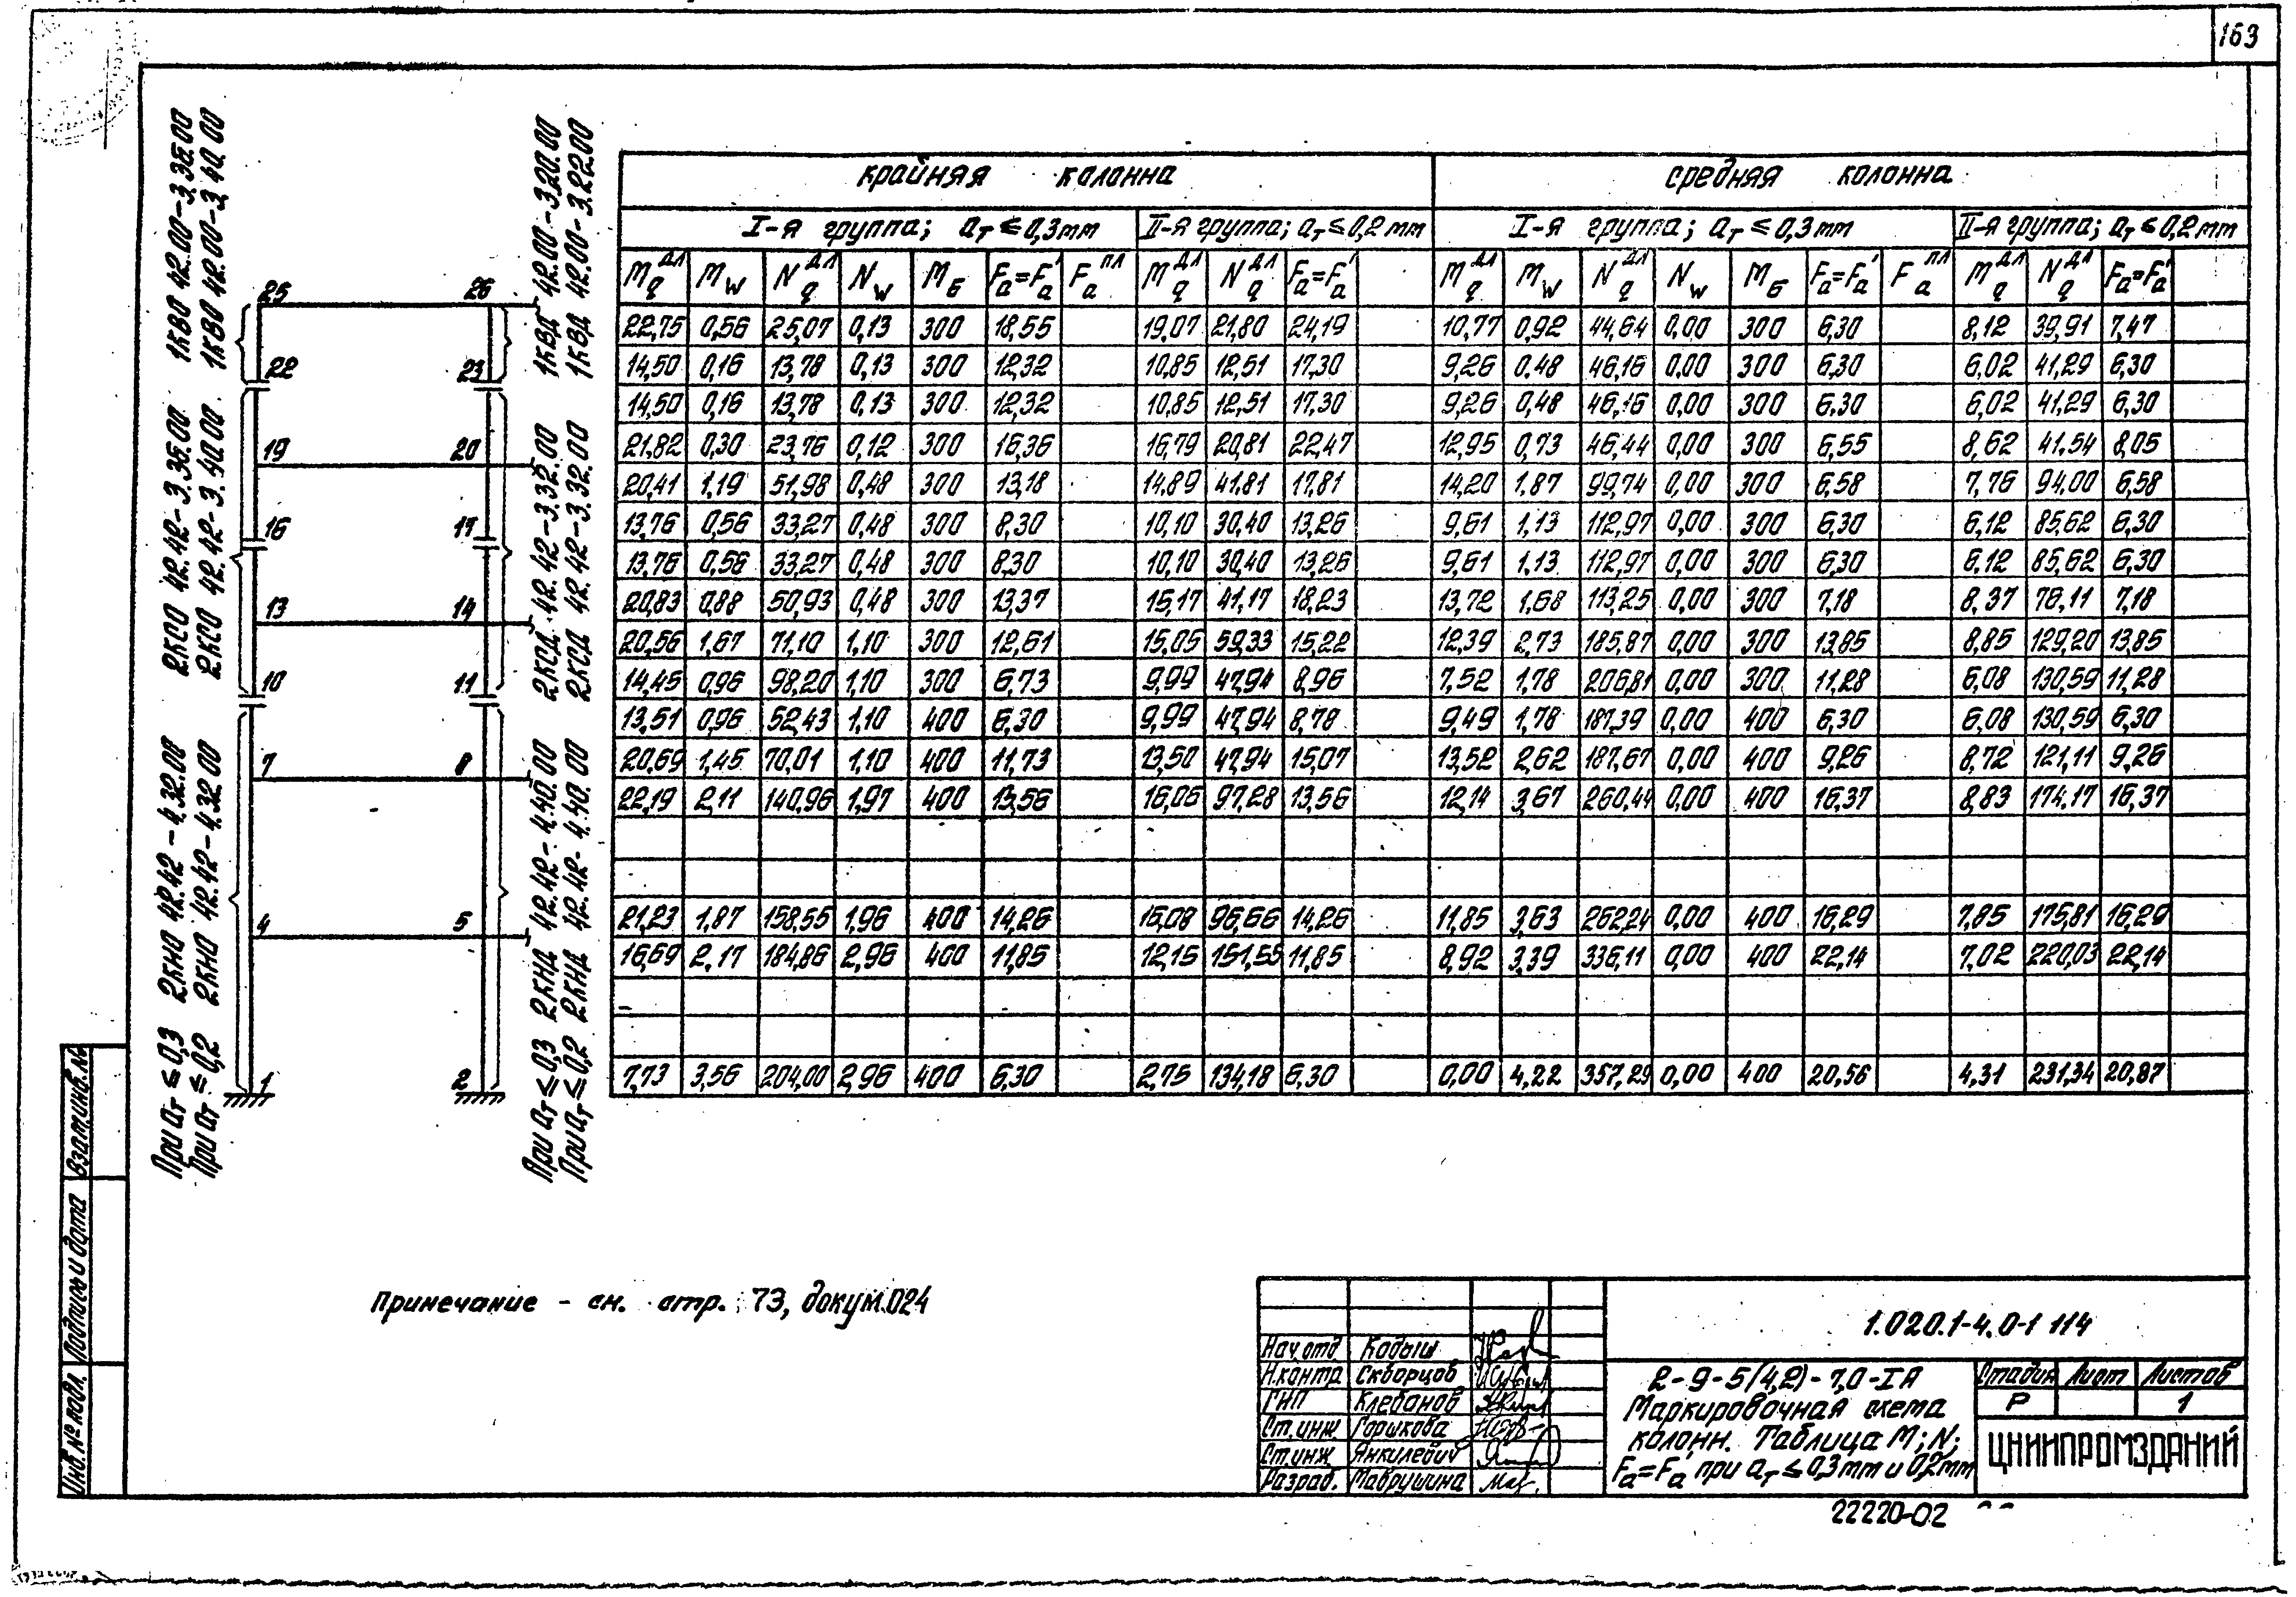 163
При aт ≤ 0,3 2КНО 42.42-4.32.00 2КСО 42.42-3.35.00 1КВО 42.00-3.35.00
При aт ≤ 0,2 2КНО 42.42-4.32.00 2КСО 42.42-3.40.00 1КВО 42.00-3.40.00
При aт ≤ 0,3 2КНД 42.42-4.40.00 2КСД 42.42-3.32.00 1КВД 42.00-3.20.00
При aт ≤ 0,2 2КНД 42.42-4.40.00 2КСД 42.42-3.32.00 1КВД 42.00-3.22.00
25 26
22 23
19 20
16 17
13 14
10 11
7 8
4 5
1 2
крайняя колонна средняя колонна
I-я группа; aт ≤ 0,3mm II-я группа; aт ≤ 0,2 mm I-я группа; aт ≤ 0,3mm II-я группа; aт ≤ 0,2mm
Mqдл Mw Nqдл Nw Mб Fa=Fa' Faпл Mqдл Nqдл Fa=Fa' Mqдл Mw Nqдл Nw Mб Fa=Fa' Faпл Mqдл Nqдл Fa=Fa'
22,75 0,56 25,07 0,13 300 18,55 19,07 21,80 24,19 10,77 0,92 44,64 0,00 300 6,30 8,12 39,91 7,47
14,50 0,16 13,78 0,13 300 12,32 10,85 12,51 17,30 9,26 0,48 46,16 0,00 300 6,30 6,02 41,29 6,30
14,50 0,16 13,78 0,13 300 12,32 10,85 12,51 17,30 9,26 0,48 46,16 0,00 300 6,30 6,02 41,29 6,30
21,82 0,30 23,76 0,12 300 16,36 16,79 20,81 22,47 12,95 0,73 46,44 0,00 300 6,55 8,62 41,54 8,05
20,41 1,19 51,98 0,48 300 13,18 14,89 41,81 17,81 14,20 1,87 99,74 0,00 300 6,58 7,76 94,00 6,58
13,76 0,56 33,27 0,48 300 8,30 10,10 30,40 13,26 9,61 1,13 112,97 0,00 300 6,30 6,12 85,62 6,30
13,76 0,56 33,27 0,48 300 8,30 10,10 30,40 13,26 9,61 1,13 112,97 0,00 300 6,30 6,12 85,62 6,30
20,83 0,88 50,93 0,48 300 13,37 15,17 41,17 18,23 13,72 1,68 113,25 0,00 300 7,18 8,37 76,11 7,18
20,56 1,67 71,10 1,10 300 12,61 15,05 59,33 15,22 12,39 2,73 185,87 0,00 300 13,85 8,85 129,20 13,85
14,45 0,96 98,20 1,10 300 6,73 9,99 47,94 8,96 7,52 1,78 206,81 0,00 300 11,28 6,08 130,59 11,28
13,51 0,96 52,43 1,10 400 6,30 9,99 47,94 8,78 9,49 1,78 187,39 0,00 400 6,30 6,08 130,59 6,30
20,69 1,45 70,01 1,10 400 11,73 13,50 47,94 15,07 13,52 2,62 187,67 0,00 400 9,26 8,72 121,11 9,26
22,19 2,11 140,96 1,97 400 13,56 16,06 97,28 13,56 12,14 3,67 260,44 0,00 400 16,37 8,83 174,17 16,37
21,23 1,87 158,55 1,96 400 14,26 15,08 96,66 14,26 11,85 3,63 262,24 0,00 400 16,29 7,85 175,81 16,29
16,69 2,17 184,86 2,96 400 11,85 12,15 151,55 11,85 8,92 3,39 336,11 0,00 400 22,14 7,02 220,03 22,14
7,73 3,56 204,00 2,96 400 6,30 2,75 134,18 6,30 0,00 4,22 357,29 0,00 400 20,56 4,31 231,34 20,87
Взам.инв.№
Подпись и дата
Инв.№ подл.
примечание - см. стр. 73, докум.024
1.020.1-4.0-1 114
Нач.отд Кодыш
Н.контр Скворцов
ГИП Клебанов
Ст.инж Горшкова
Ст.инж Янкилевич
Разраб. Маврушина
2-9-5(4,2)-7,0-IА
Маркировочная схема
колонн. Таблица М; N;
Fa=Fa' при aт ≤ 0,3mm и 0,2mm
Стадия Лист Листов
Р 1
ЦНИИПРОМЗДАНИЙ
22220-02